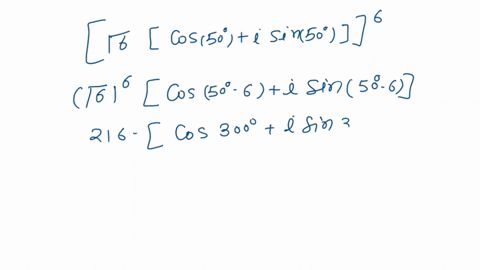 [√6 [ Cos(50°) + i Sin(50°) ]]^6
(√6)^6 [ Cos (50°·6) + i Sin (50°·6) ]
216· [ Cos 300° + i Sin 3